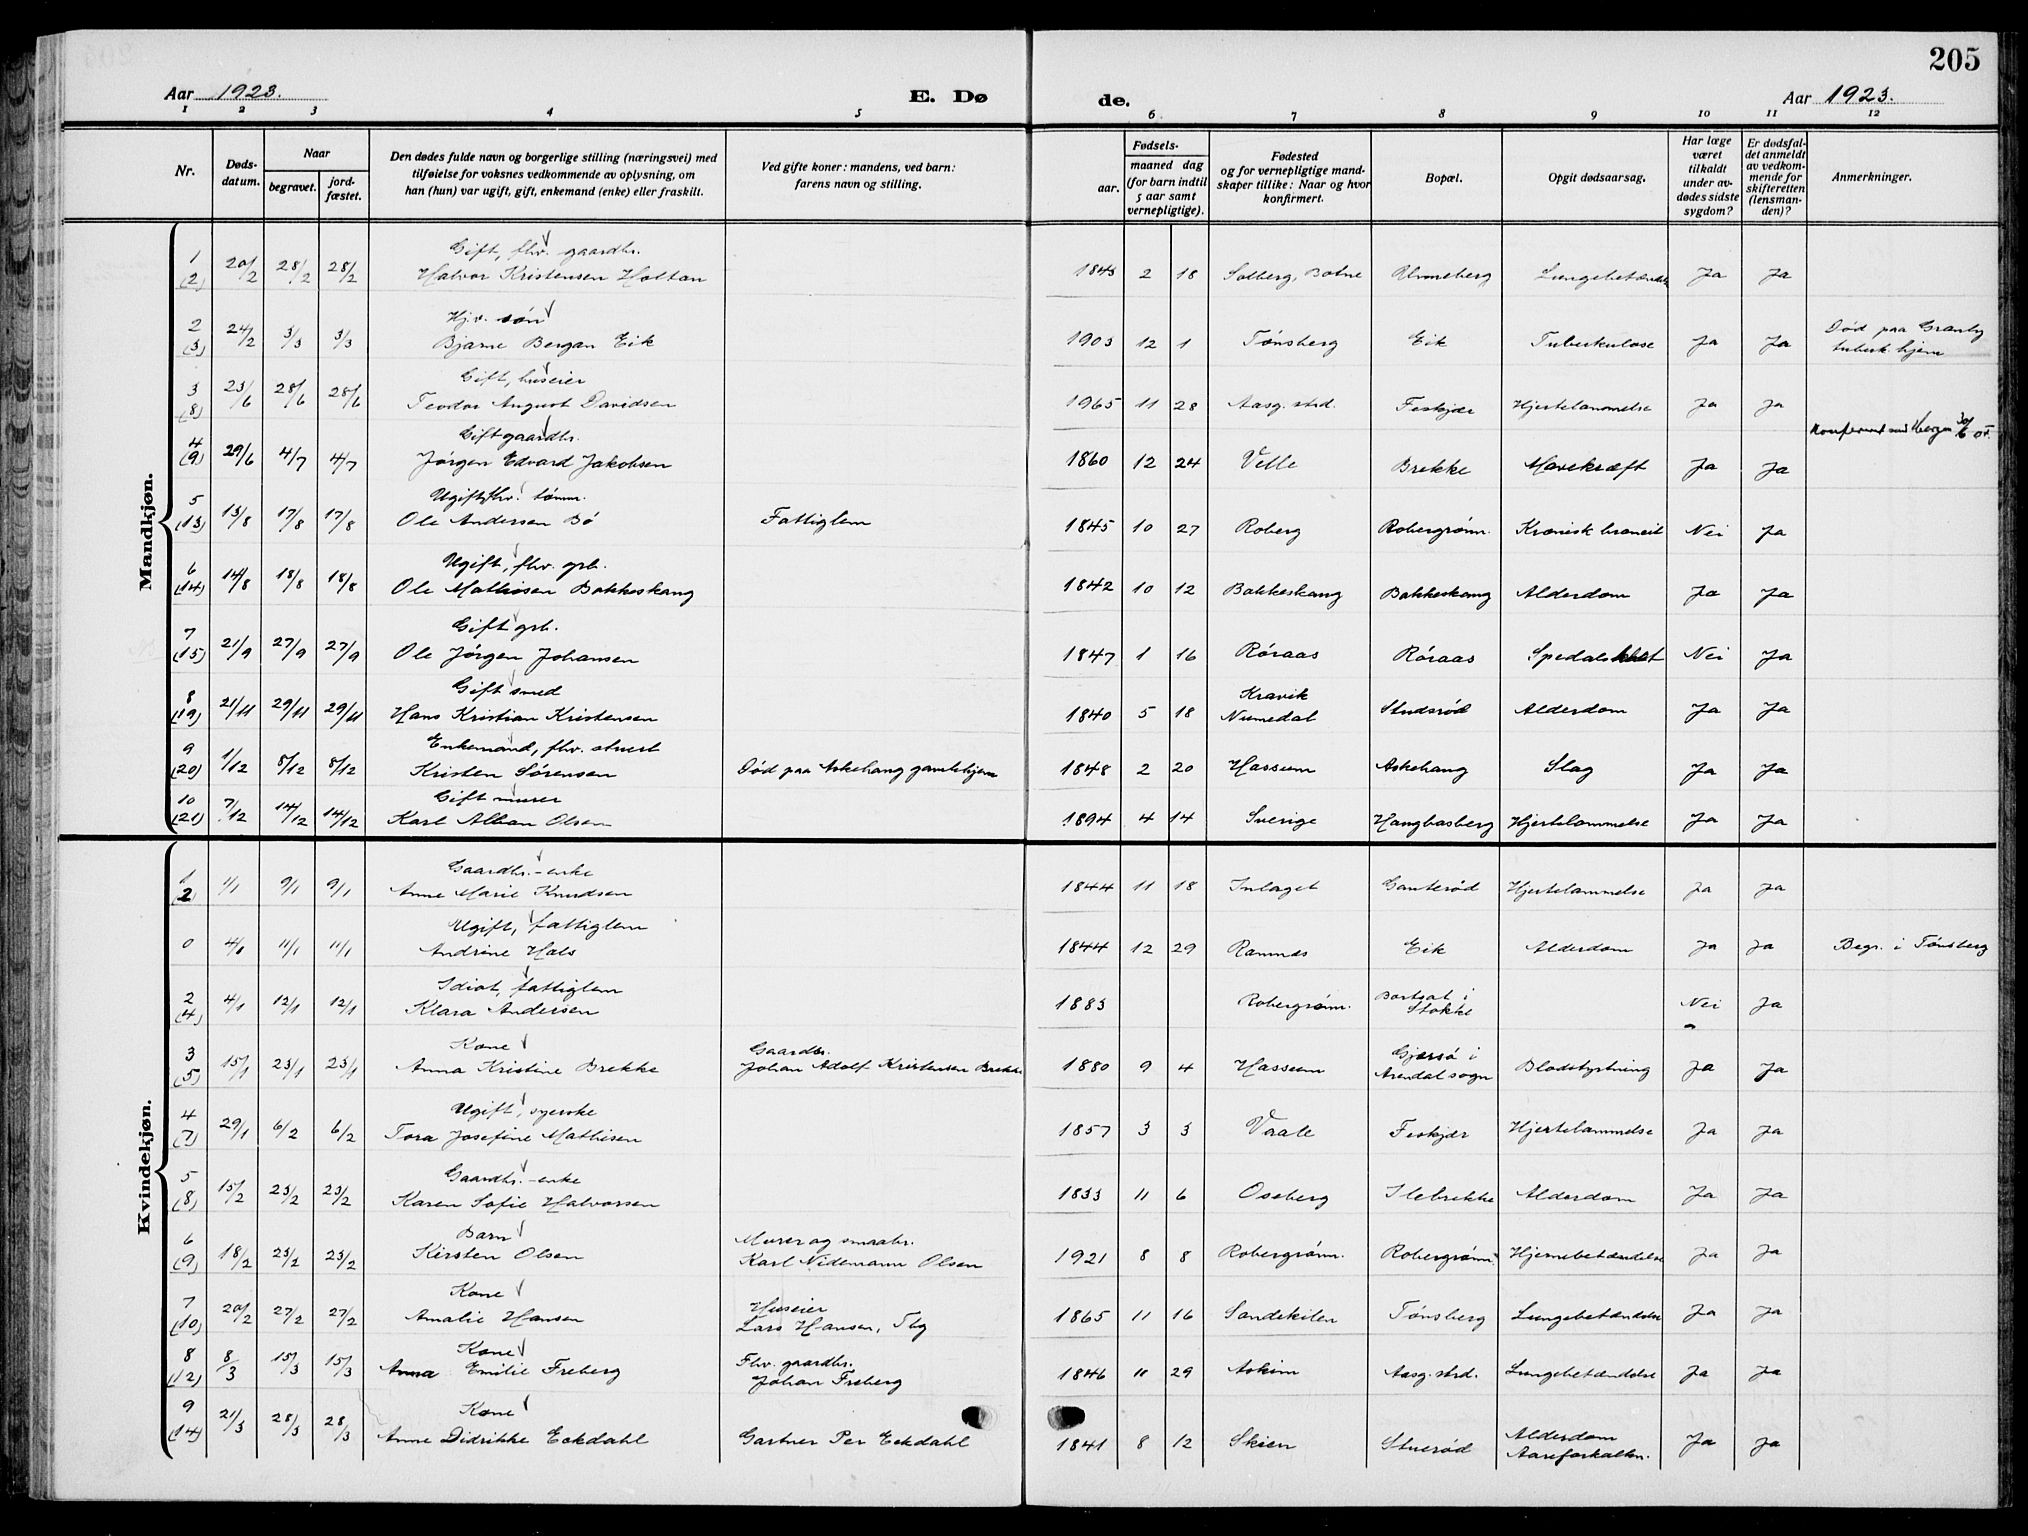 205
Aar 1923. E. Dø de. Aar 1923.
1 2 3 4 5 6 7 8 9 10 11 12
Nr. Døds-datum. Naar begravet. jord-fæstet. Den dødes fulde navn og borgerlige stilling (næringsvei) med tilføielse for voksnes vedkommende av oplysning, om han (hun) var ugift, gift, enkemand (enke) eller fraskilt. Ved gifte koner: mandens, ved barn: farens navn og stilling. Fødsels- aar. maaned dag (for barn indtil 5 aar samt vernepligtige). Fødested og for vernepligtige mandskaper tillike: Naar og hvor konfirmert. Bopæl. Opgit dødsaarsag. Har læge været tilkaldt under avdødes sidste sygdom? Er dødsfaldet anmeldt av vedkommende for skifteretten (lensmanden)? Anmerkninger.
Mandkjøn.
Gift, fhv. gaardbr.
1 (2) 20/2 28/2 28/2 Halvor Kristensen Holtan 1843 2 18 Solberg, Botne Lungebetændelse Ja Ja
Hj.v. søn
2 (3) 24/2 3/3 3/3 Bjarne Bergan Eik 1903 12 1 Tønsberg Eik Tuberkulose Ja Ja Død paa Granly
tuberk. hjem
Gift, huseier
3 (8) 23/6 28/6 28/6 Teodor August Davidsen 1965 11 28 Aasg. strd. Feskjær Hjertelammelse Ja Ja
Gift gaardbr.
4 (9) 29/6 4/7 4/7 Jørgen Edvard Jakobsen 1860 12 24 Velle Brekke Mavekræft Ja Ja
Ugift, fhv. tømm.
5 (13) 13/8 17/8 17/8 Ole Andersen Bø Fattiglem 1845 10 27 Roberg Robergrønn. Kronisk broncit Nei Ja
Ugift, fhv. grb.
6 (14) 14/8 18/8 18/8 Ole Mathisen Bakkeskaug 1842 10 12 Bakkeskaug Bakkeskaug Alderdom Ja Ja
Gift grb.
7 (15) 21/9 27/9 27/9 Ole Jørgen Johansen 1847 1 16 Røraas Røraas Spedalskhet Nei Ja
Gift smed
8 (19) 21/11 29/11 29/11 Hans Kristian Kristensen 1840 5 18 Kravik
Numedal Studsrød Alderdom Ja Ja
Enkemand, fhv. stuert
9 (20) 1/12 8/12 8/12 Kristen Sørensen Død paa Askehaug gamlehjem 1848 2 20 Hassum Askehaug Slag Ja Ja
Gift murer
10 (21) 7/12 14/12 14/12 Karl Alban Olsen 1894 4 14 Sverige Haugbasberg Hjertelammelse Ja Ja
Kvindekjøn.
Gaardbr.-enke
1 (2) 1/1 9/1 9/1 Anne Marie Knudsen 1844 11 18 Inlaget Gauterød Hjertelammelse Ja Ja
Ugift, fattiglem
0 4/1 11/1 11/1 Andrine Hals 1844 12 29 Ramnes Eik Alderdom Ja Ja Begr. i Tønsberg
Idiot, fattiglem
2 (4) 4/1 12/1 12/1 Klara Andersen 1883 Robergrønn. Bortsat i
Stokke Nei Ja
Kone
3 (5) 15/1 23/1 23/1 Anna Kristine Brekke Gaardbr.
Johan Adolf Kristensen Brekke 1880 9 4 Hassum i
Arendal sogn Blodstyrtning Ja Ja
Ugift, syerske
4 (7) 29/1 6/2 6/2 Tora Josefine Mathisen 1857 3 3 Vaale Feskjær Hjertelammelse Ja Ja
Gaardbr.-enke
5 (8) 15/2 23/2 23/2 Karen Sofie Halvorsen 1833 11 6 Oseberg Ilebrekke Alderdom Ja Ja
Barn
6 (9) 18/2 23/2 23/2 Kirsten Olsen Murer og smaabr.
Karl Nidemann Olsen 1921 8 8 Robergrønn. Robergrønn. Hjernebetændelse Ja Ja
Kone
7 (10) 20/2 27/2 27/2 Amalie Hansen Huseier
Lars Hansen, Tbg 1865 11 16 Sandekilen Tønsberg Lungebetændelse Ja Ja
Kone
8 (12) 8/3 15/3 15/3 Anna Emilie Freberg Fhv. gaardbr.
Johan Freberg 1846 11 29 Askim Aasg. strd. Lungebetændelse Ja Ja
Kone
9 (14) 21/3 28/3 28/3 Anne Didrikke Eckdahl Gartner Per Eckdahl 1841 8 12 Skien Stuerød Alderdom
Aareforkalkn. Ja Ja